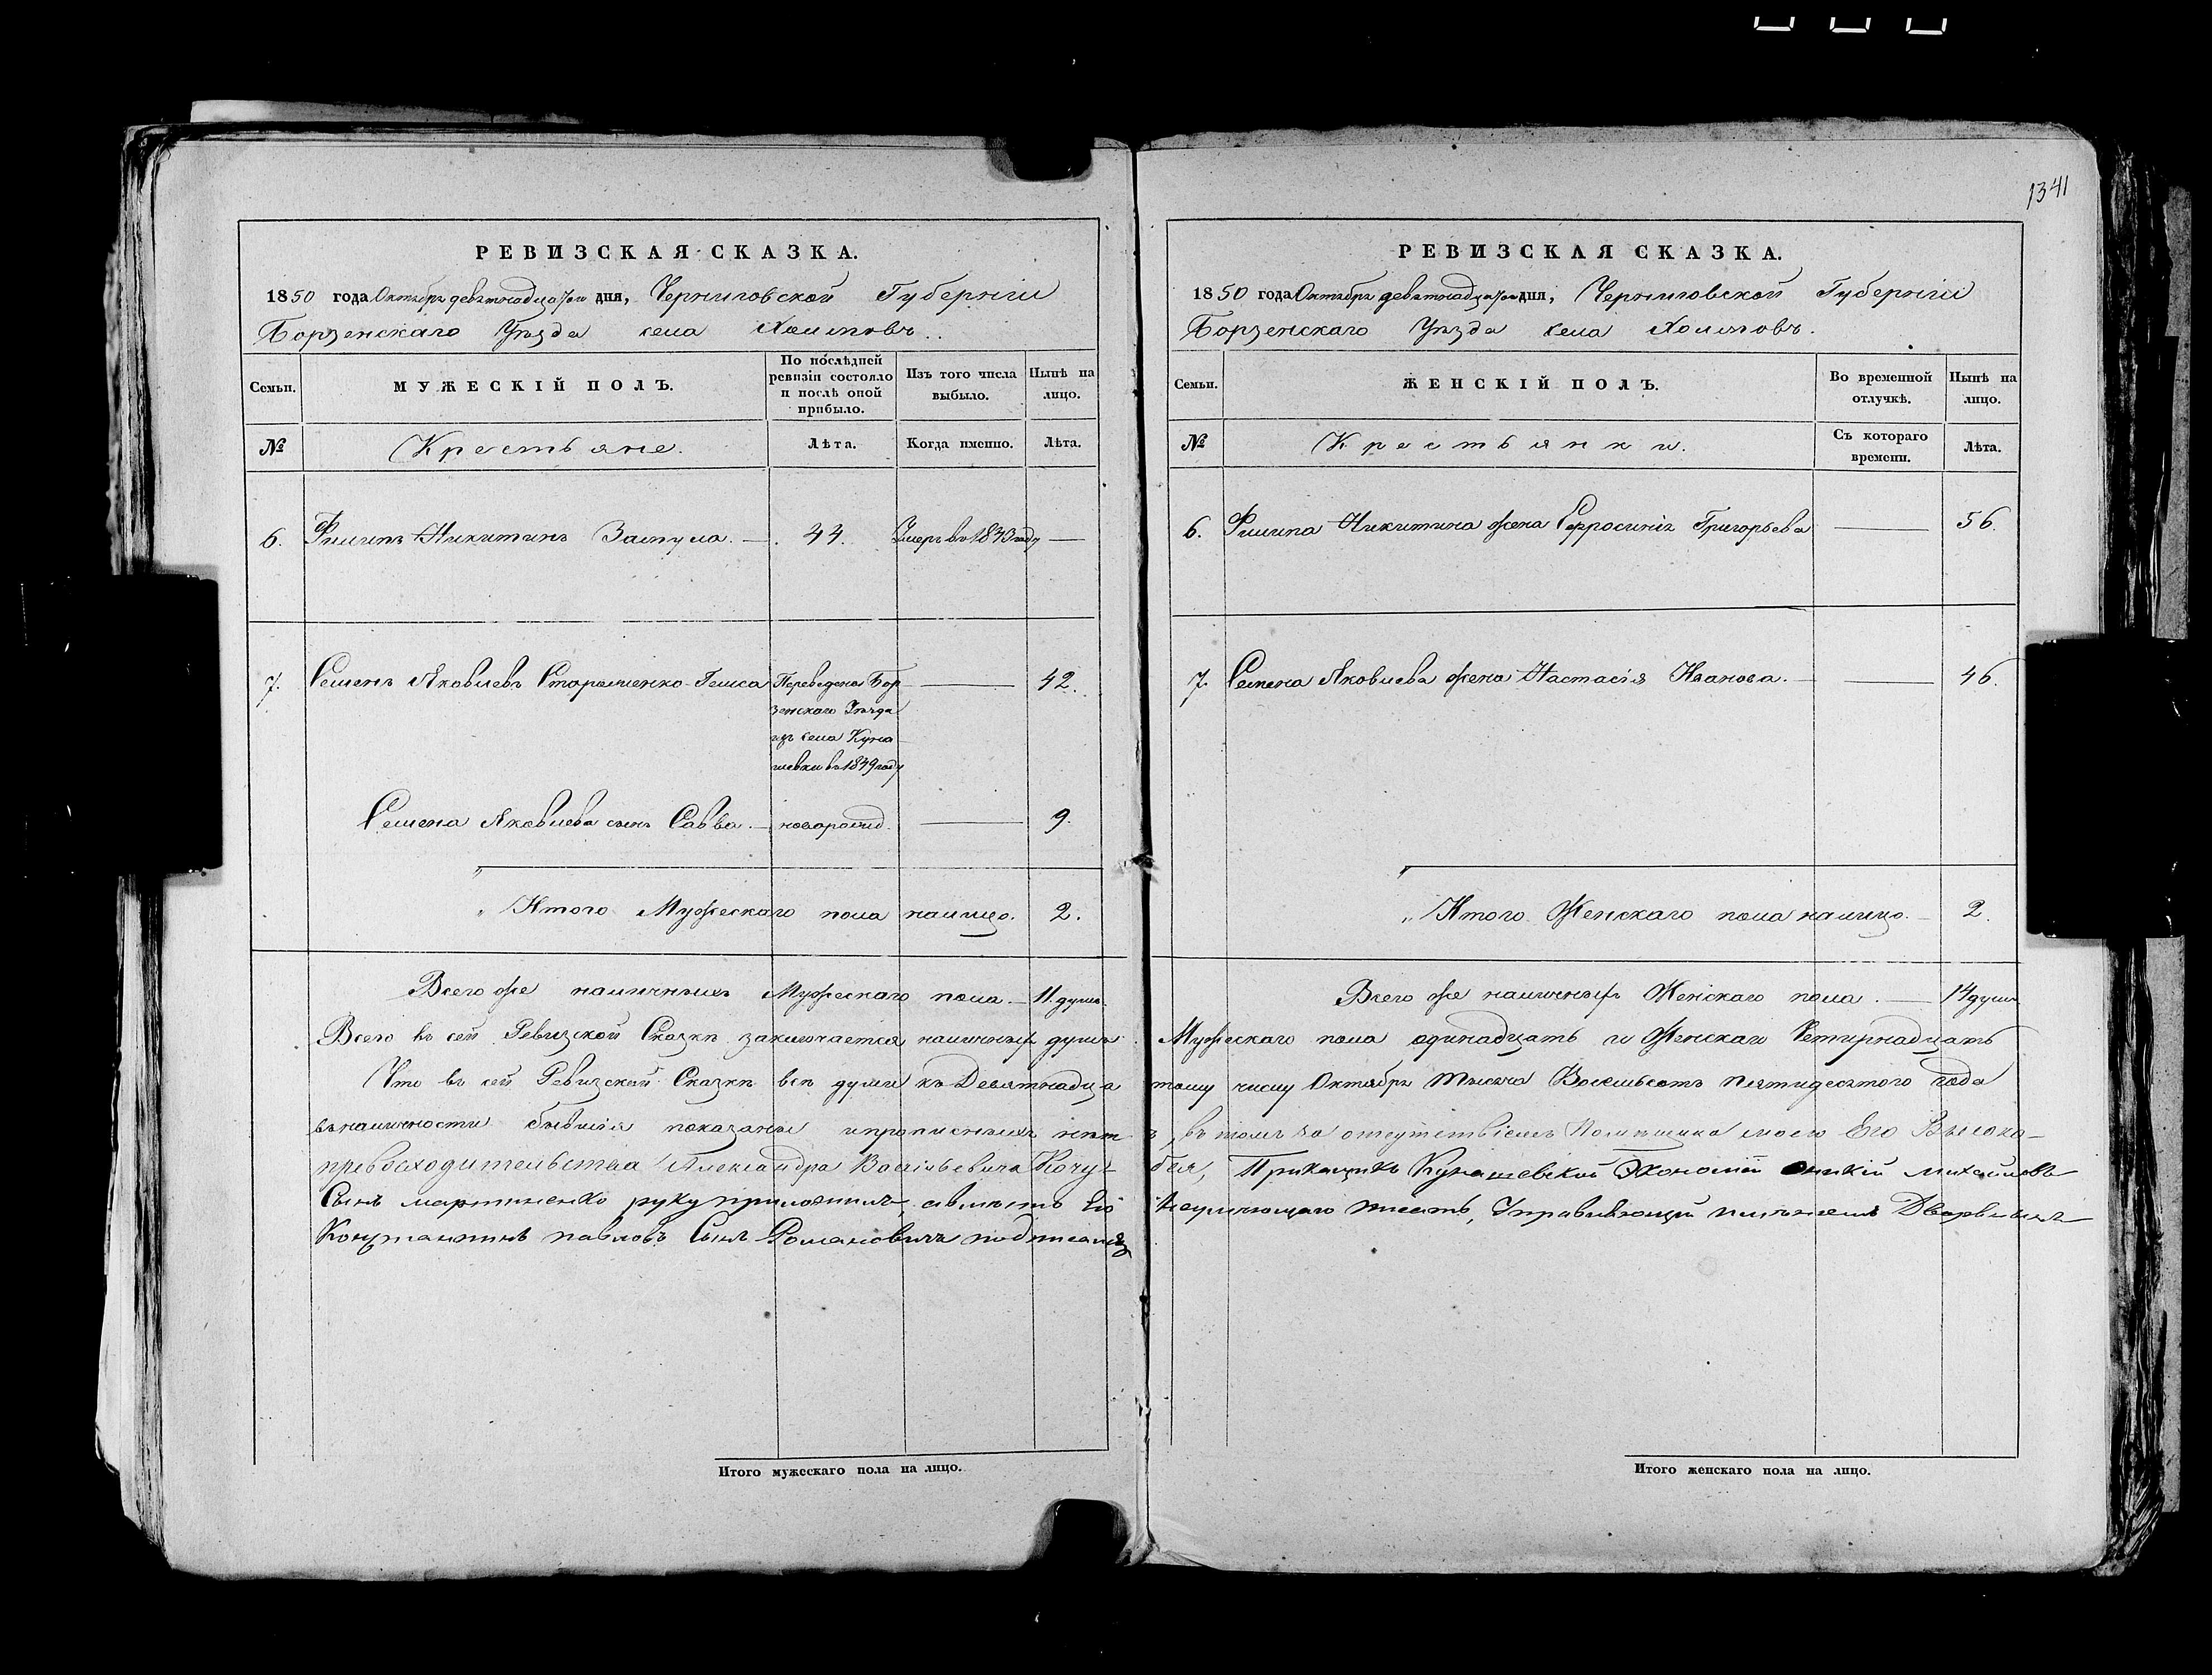 1341
РЕВИЗСКАЯ СКАЗКА.
1850 года Октября девятнадцатого дня, Черниговской Губерніи
Борзенскаго Уѣзда села Холмовъ.
Семьи.
МУЖЕСКІЙ ПОЛЪ.
По послѣдней ревизіи состояло и послѣ оной прибыло.
Изъ того числа выбыло.
Нынѣ на лицо.
№
Крестьяне.
Лѣта.
Когда именно.
Лѣта.
6. Филипъ Никитинъ Заступа. 44. Умеръ въ 1840 году
7. Семенъ Яковлевъ Пereведенъ Бор 42.
зенскаго Уѣзда
изъ села Куна
шевки въ 1849 году
Семена Яковлева сынъ Савва. новорожд. 9.
Итого Мужескаго пола налицо. 2.
Всего же наличныхъ Мужескаго пола. 11. душъ.
Всего въ сей Ревизской Сказкѣ заключается наличныхъ душъ
Что въ сей Ревизской Сказкѣ всѣ души къ Девятнадца
въ наличности бывшія показаны и прописныхъ нѣт
превосходительства Александра Васильевича Кочу-
Сынъ мартиненко руку приложилъ, а вмѣсто Его
Константинъ павловъ Сынъ Романовичъ подписалъ
Итого мужескаго пола на лицо.
РЕВИЗСКАЯ СКАЗКА.
1850 года Октября девятнадцатого дня, Черниговской Губерніи
Борзенскаго Уѣзда села Холмовъ.
Семьи.
ЖЕНСКІЙ ПОЛЪ.
Во временной отлучкѣ.
Нынѣ на лицо.
№
Крестьянки.
Съ котораго времени.
Лѣта.
6. Филипа Никитина жена Ефросинія Григорьева 56.
7. Семена Яковлева жена Настасія Иванова. 46.
Итого Женскаго пола налицо. 2.
Всего же наличныхъ Женскаго пола. 14 душъ
Мужескаго пола одинадцать и Женскаго Четирнадцать
тому числу Октября Тысяча Восемьсотъ пятидесятого года
ъ, въ томъ за отсутствіемъ Помѣщика моего Его Высоко-
бея, Прикащикъ Кунашевской Экономіи михайловъ
неумѣющаго писать, Управляющій имѣніемъ Дворянинъ
Итого женскаго пола на лицо.